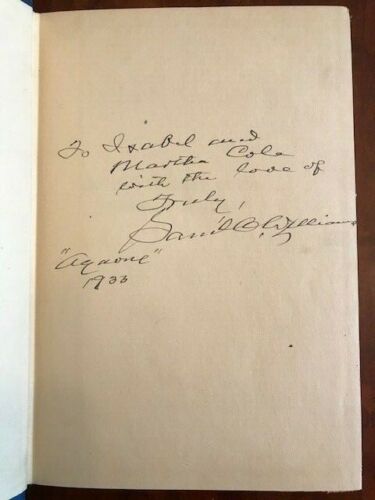 To Isabel and
Martha Cole
with the love of
Truly,
Sam'l C. Williams
"Aquone"
1933